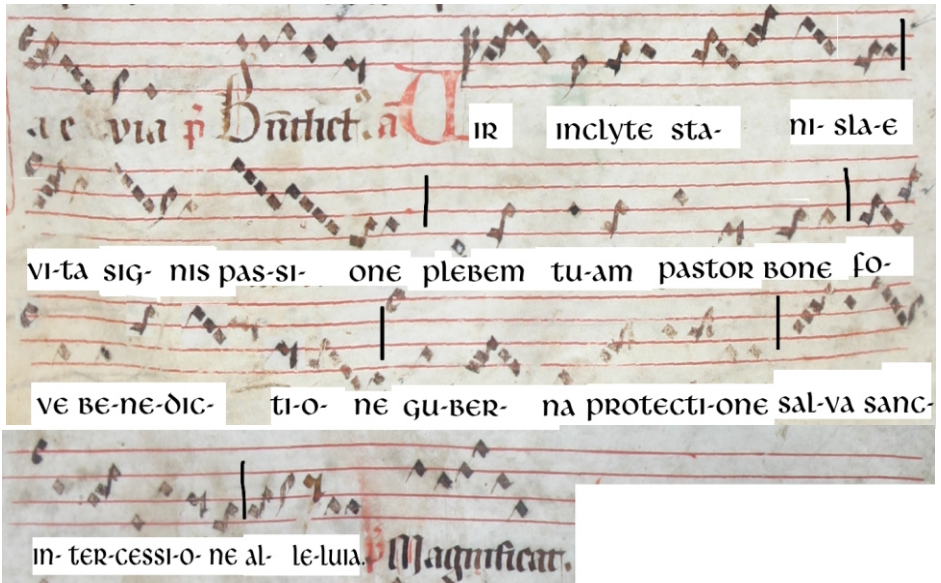 a e via p̃ Bñdict ã VIR INCLYTE STA- NI- SLA-E
VI-TA SIG- NIS PAS-SI- ONE PLEBEM TU-AM PASTOR BONE FO-
VE BE-NE-DIC- TI-O- NE GU-BER- NA PROTECTI-ONE SAL-VA SANC-
IN- TER-CESSI-O- NE AL- LE-LUIA. p̃ Magnificat.